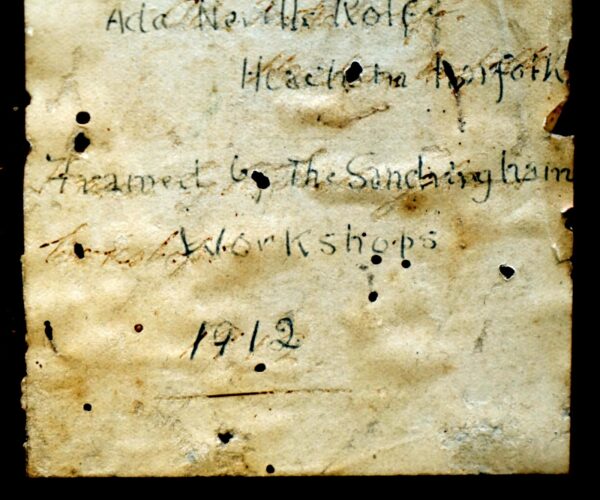 Ada Neville Rolfe
Heacham Norfolk
Framed by The Sandringham
Workshops
1912